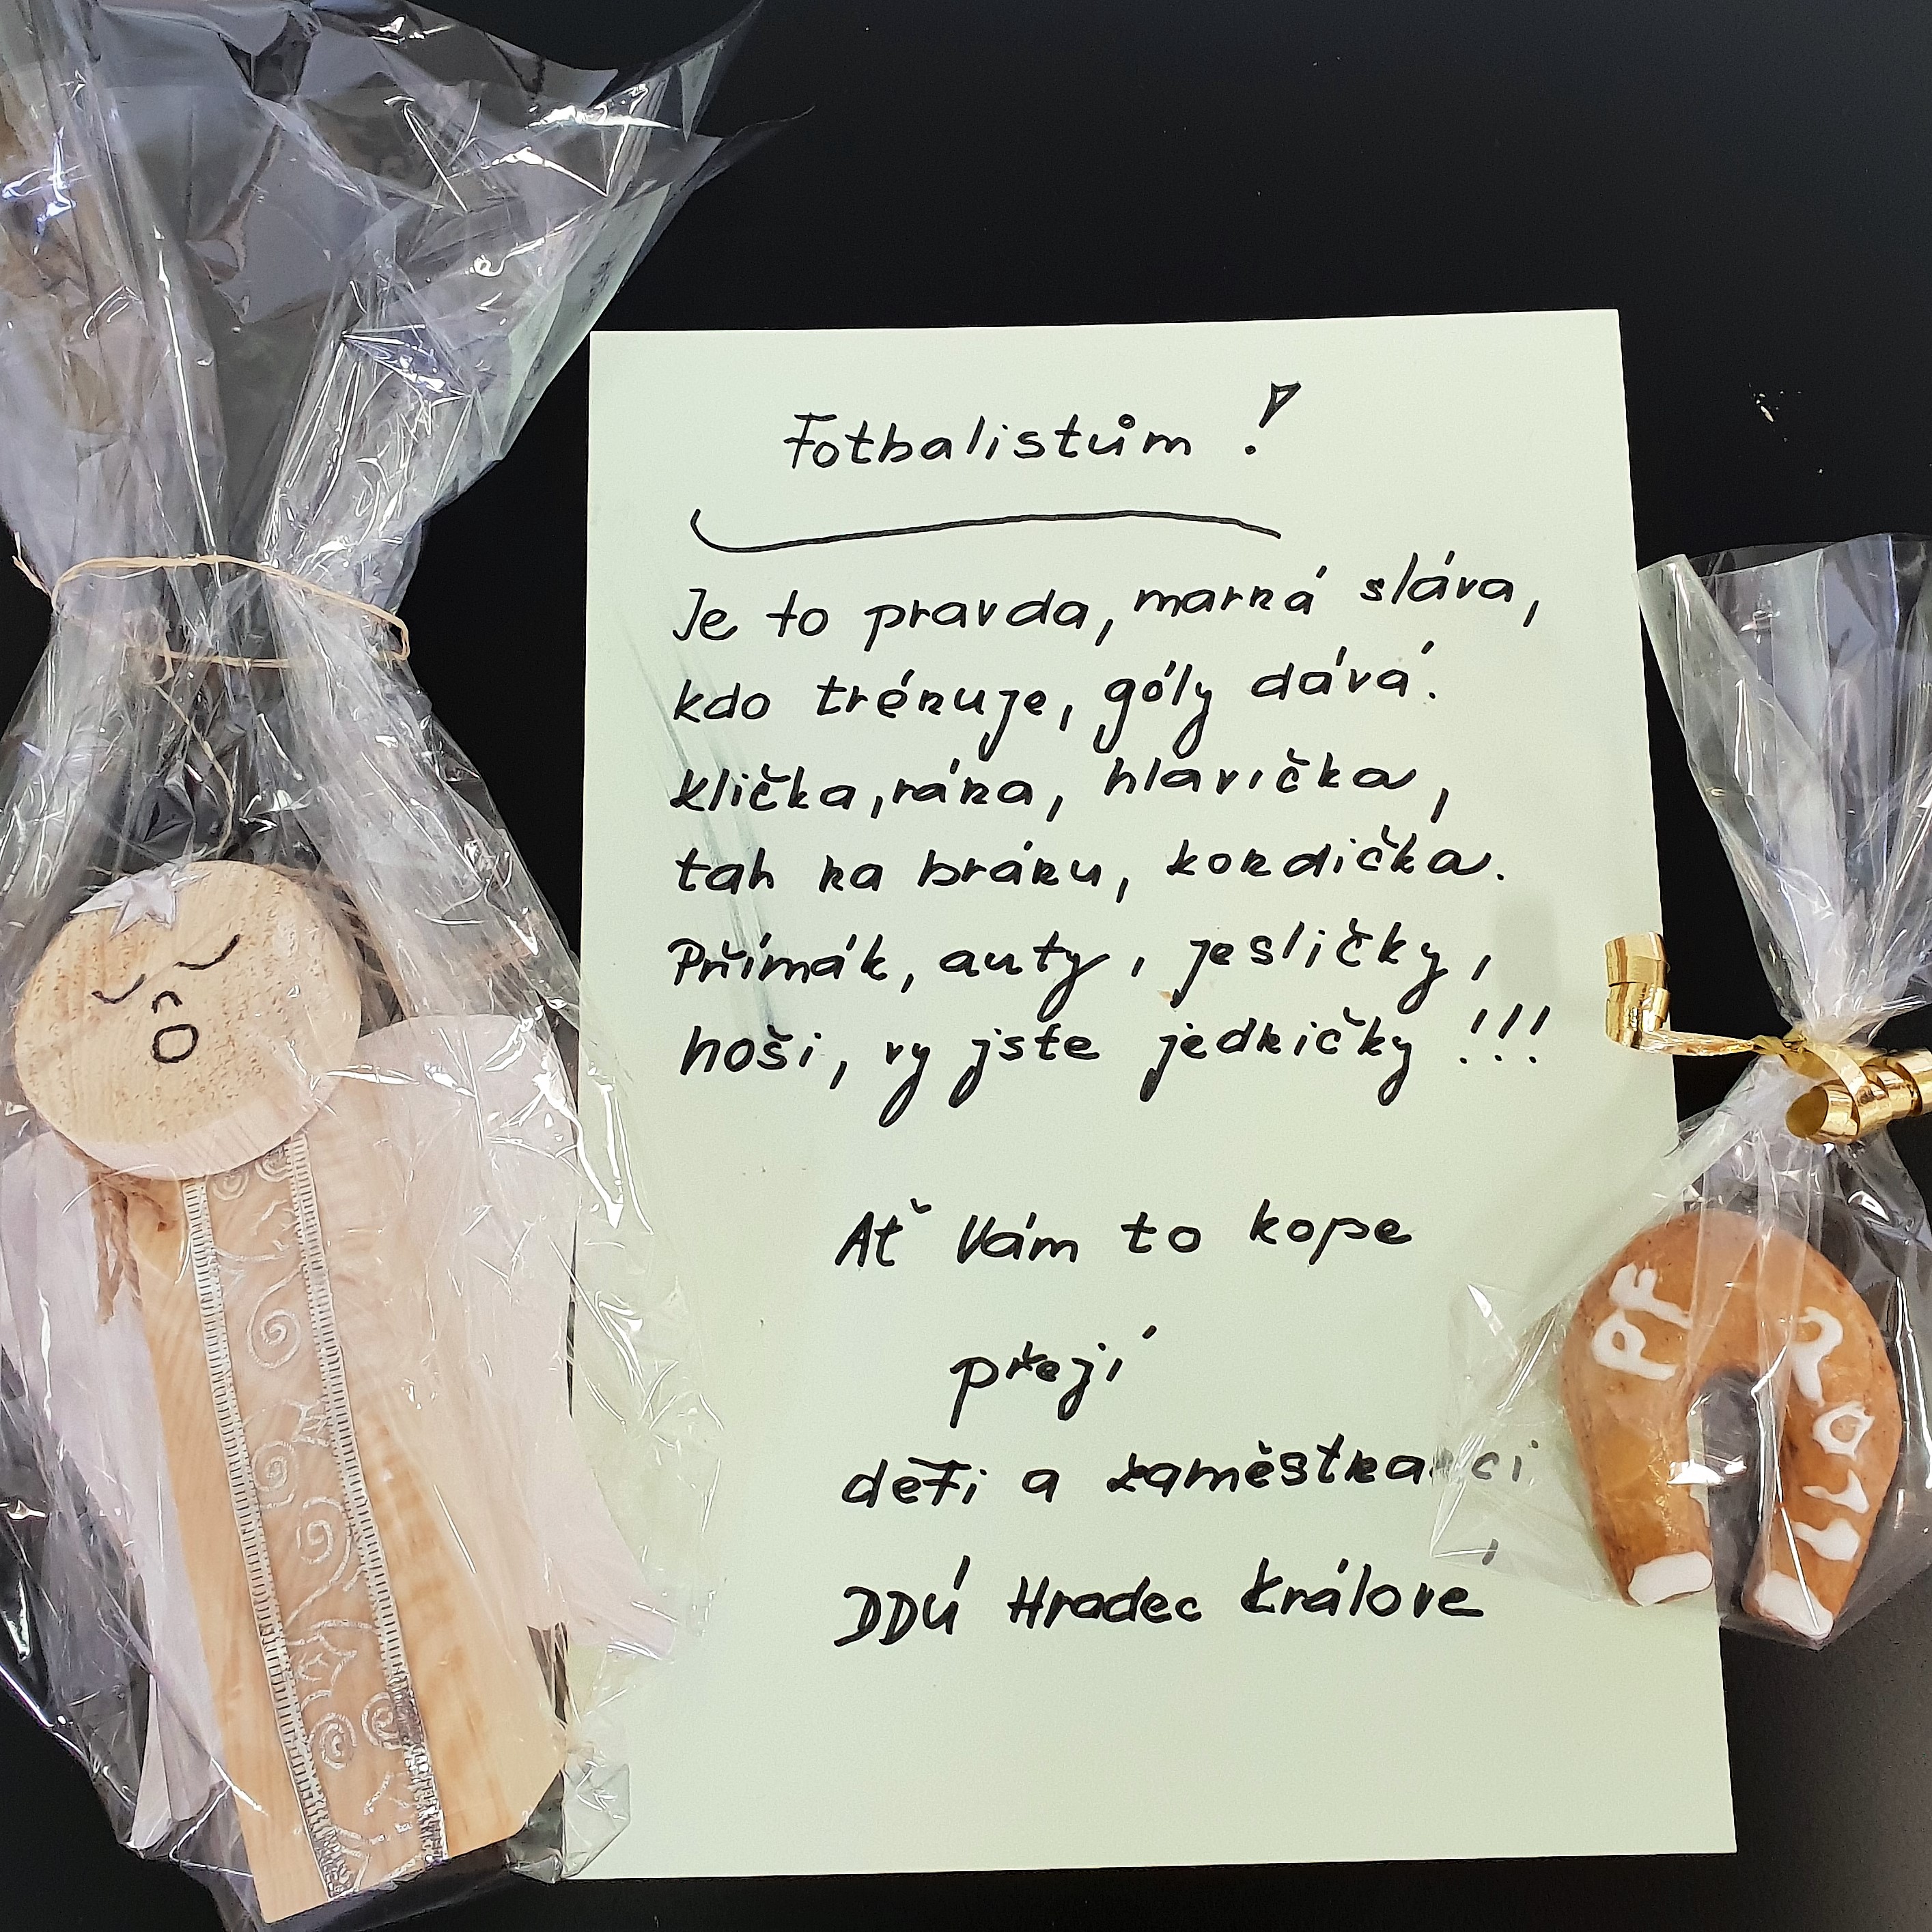 Fotbalistům!
Je to pravda, marná sláva,
kdo trénuje, góly dává.
klička, rána, hlavička,
tah na bránu, kondička.
Přímák, auty, jesličky,
hoši, vy jste jedničky!!!
Ať Vám to kope
přejí
děti a zaměstnanci
DDÚ Hradec Králové
PF
2022